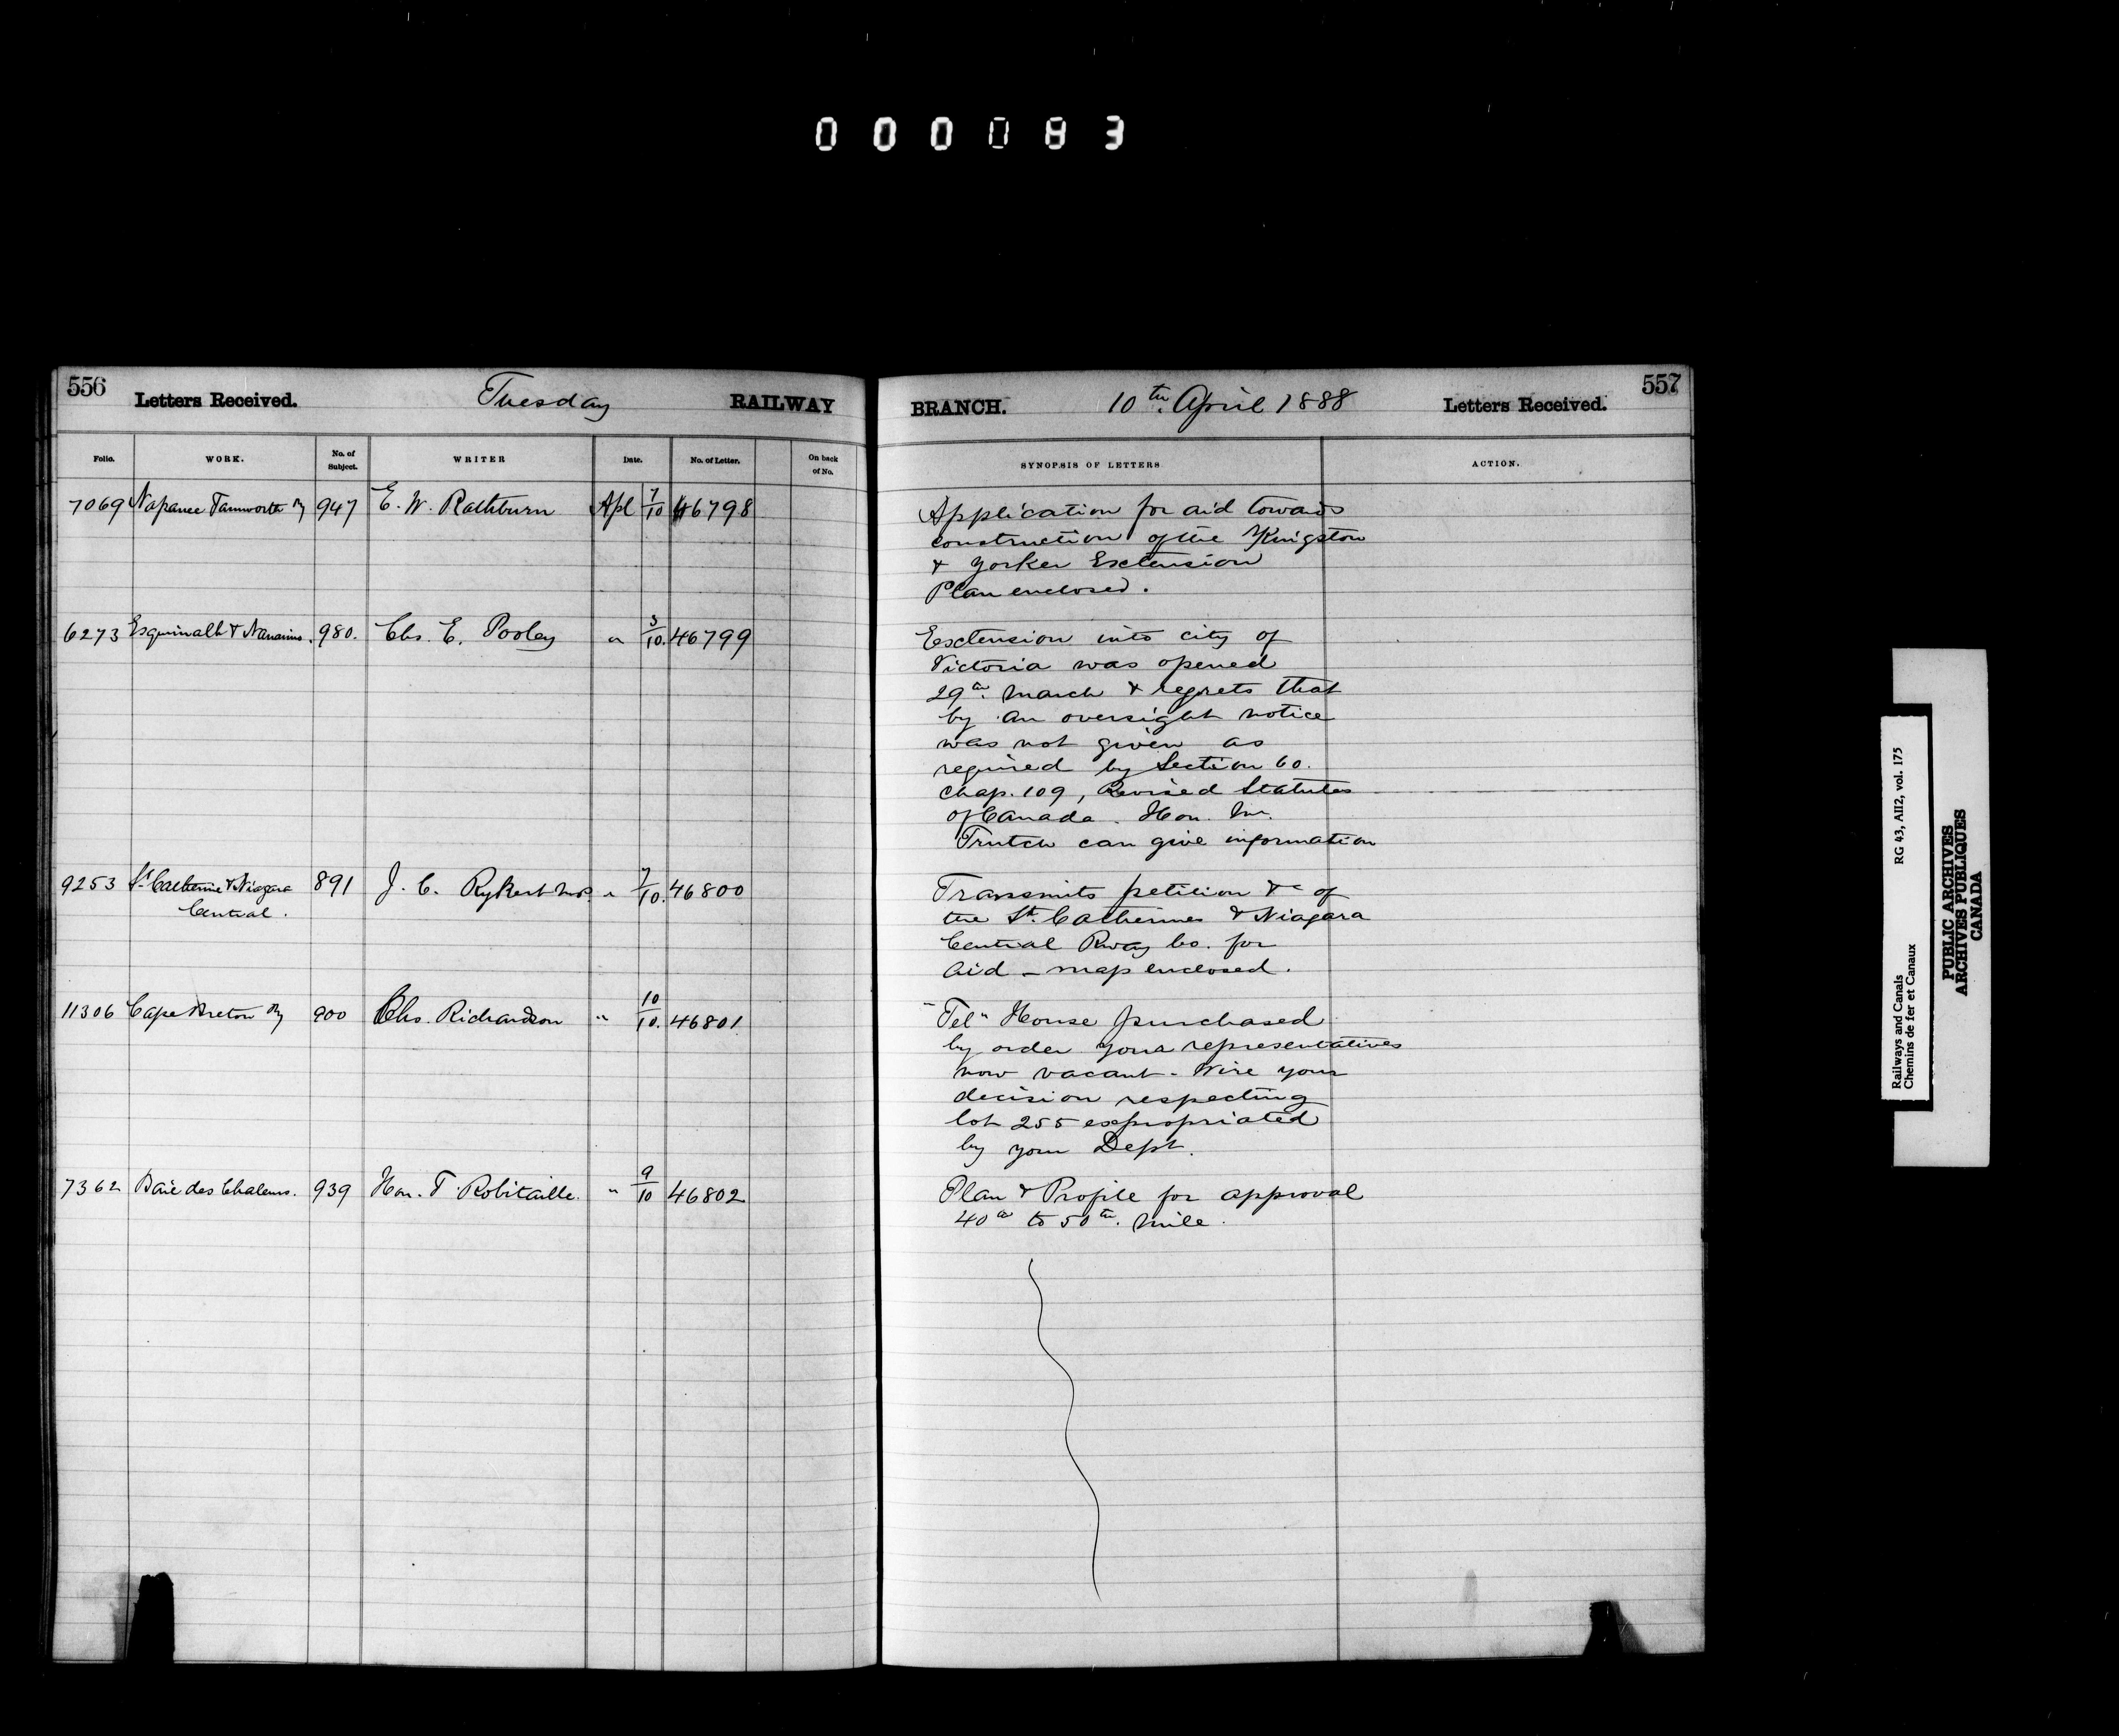 0 0 0 0 8 3
556 Letters Received. Tuesday RAILWAY
BRANCH. 10th. April 1888 Letters Received. 557
Folio. WORK. No. of Subject. WRITER Date. No. of Letter. On back of No.
SYNOPSIS OF LETTERS ACTION.
7069 Napanee Tamworth Ry 947 E. W. Rathburn Apl 7/10 46798
Application for aid towards
construction of the Kingston
& Yorker Extension
Plan enclosed.
6273 Esquimalt & Nanaimo. 980. Chs. E. Pooley " 3/10. 46799
Extension into city of
Victoria was opened
29th. March & regrets that
by an oversight notice
was not given as
required by Section 60.
Chap. 109, Revised Statutes
of Canada. Hon. Mr.
Trutch can give information
9253 St. Catherine & Niagara 891 J. C. Rykert M.P. " 7/10. 46800
Central.
Transmits petition &c of
the St. Catherines & Niagara
Central Rway Co. for
aid - map enclosed.
11306 Cape Breton Ry 900 Chs. Richardson " 10/10. 46801
"Tel" House purchased
by order your representatives
now vacant - Wire your
decision respecting
lot 255 expropriated
by your Dept.
7362 Baie des Chaleurs. 939 Hon. T. Robitaille. " 9/10 46802
Plan & Profile for approval
40th to 50th. mile.
Railways and Canals RG 43, AII2, vol. 175
Chemins de fer et Canaux
PUBLIC ARCHIVES
ARCHIVES PUBLIQUES
CANADA